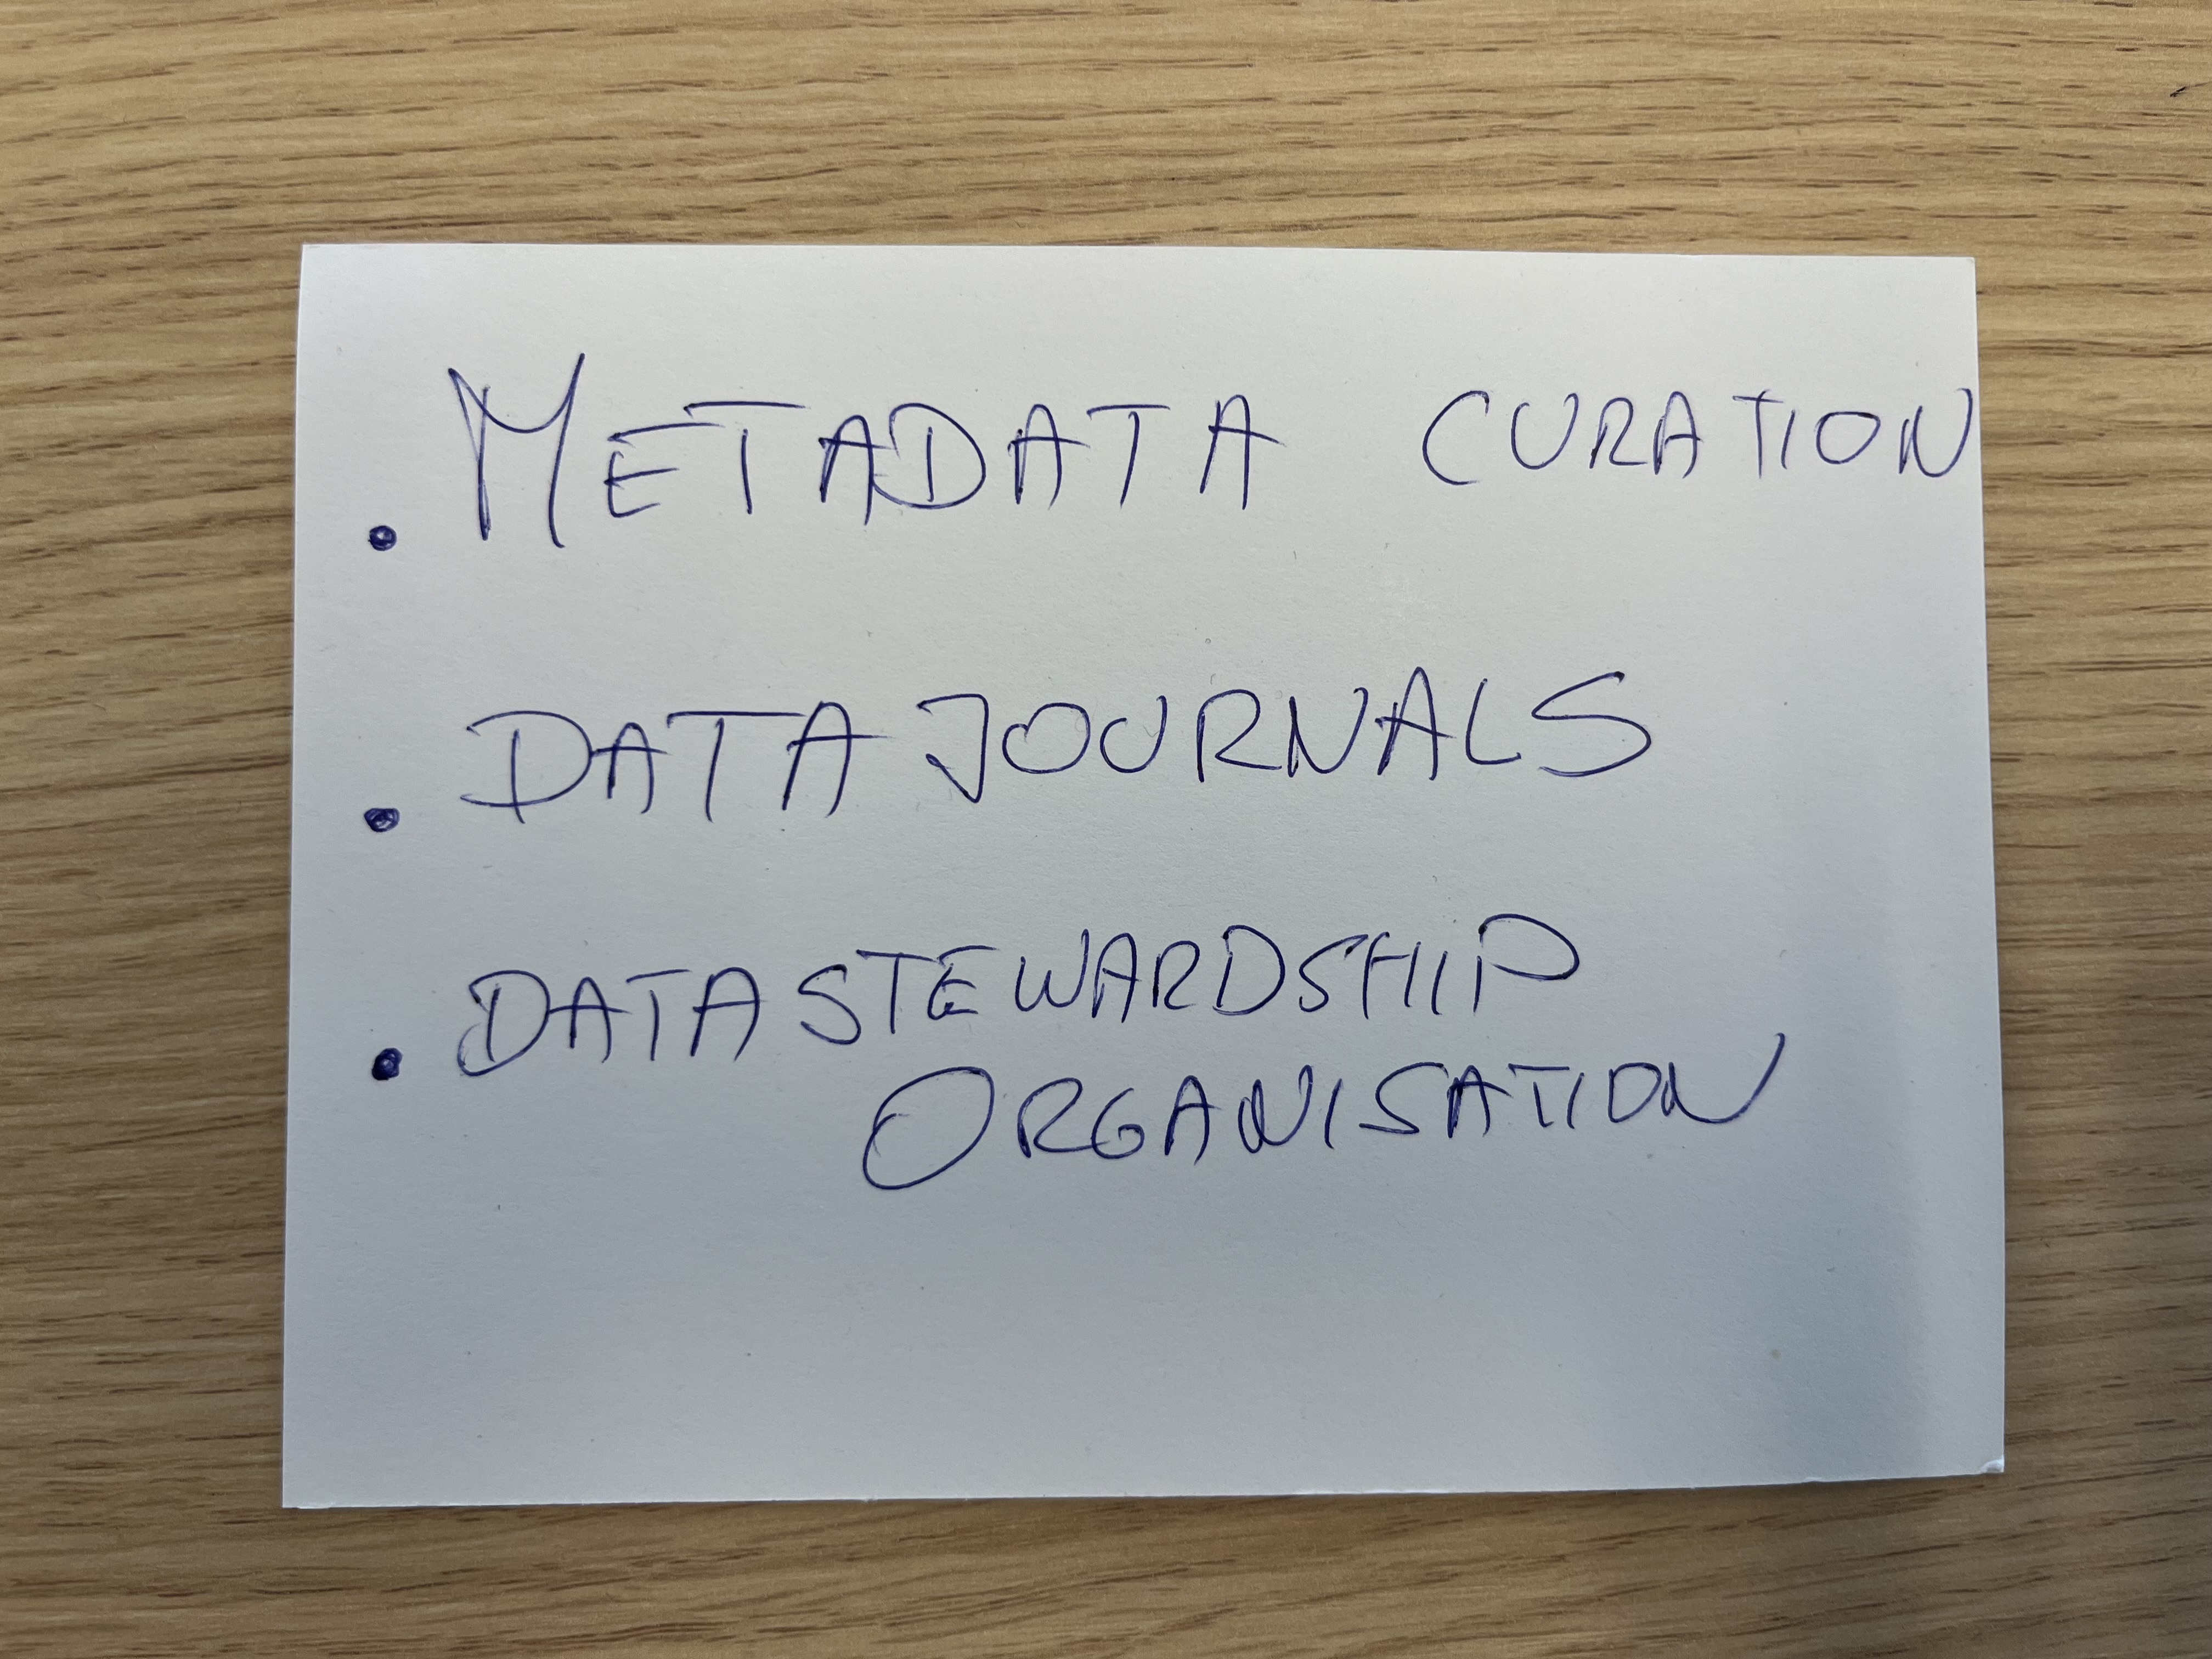 • METADATA CURATION
• DATA JOURNALS
• DATA STEWARDSHIP
ORGANISATION